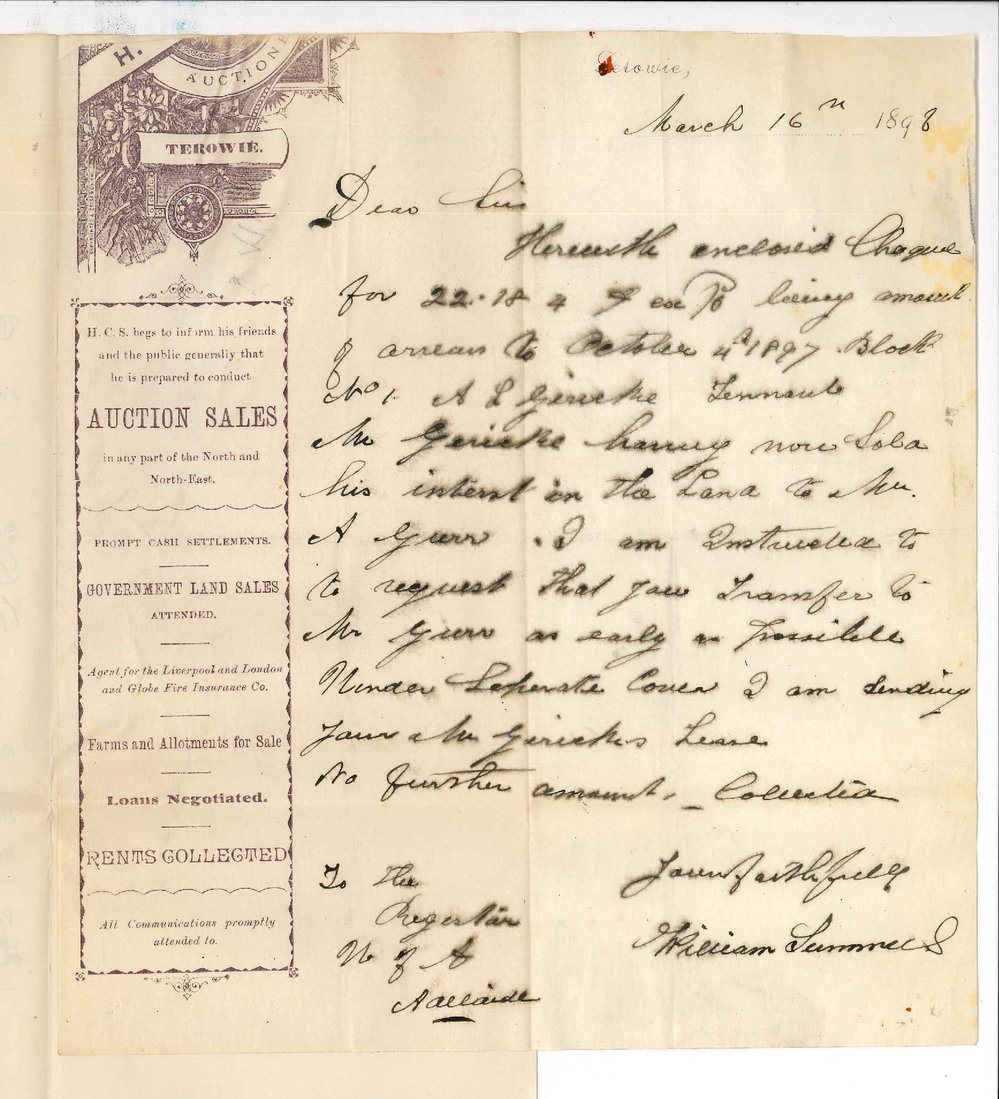 H.
AUCTIONE
TEROWIE.
H. C. S. begs to inform his friends
and the public generally that
he is prepared to conduct
AUCTION SALES
in any part of the North and
North-East.
PROMPT CASH SETTLEMENTS.
GOVERNMENT LAND SALES
ATTENDED.
Agent for the Liverpool and London
and Globe Fire Insurance Co.
Farms and Allotments for Sale
Loans Negotiated.
RENTS COLLECTED
All Communications promptly
attended to.
Terowie,
March 16th 1898
Dear Sir
Herewith enclosed Cheque
for 22.18 4 being amount
of arrears to October 4th 1897 Block
No 1. A L Gericke Tennant
Mr Gericke having now Sold
his interst in the Land to Mr.
A Gurr . I am Instructed to
to request that you Transfer to
Mr Gurr as early as possible
Under Seperate Cover I am sending
your Mr Gerickes Lease
No further amounts Collected
Yours faithfully
William Summers
To the
Registrar
U of A
Adelaide